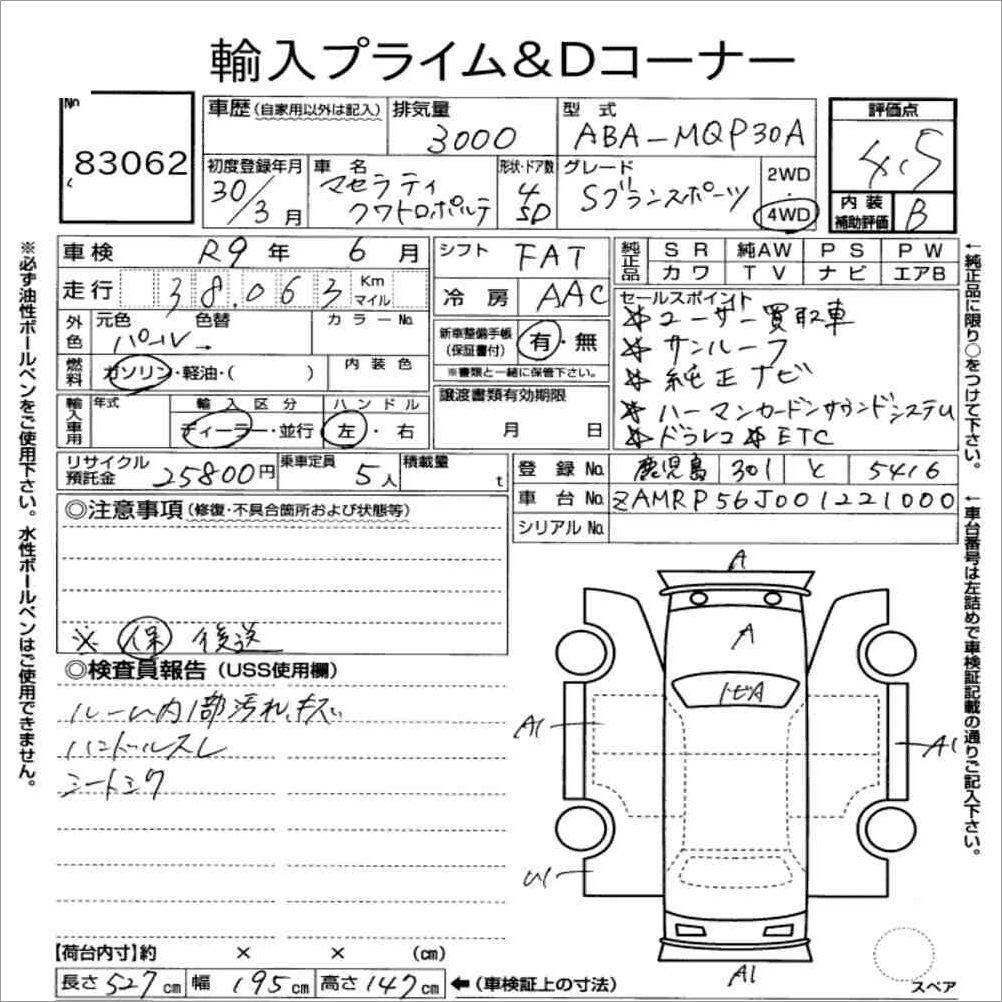 輸入プライム&Dコーナー
No
83062
車歴(自家用以外は記入)
排気量
3000
型 式
ABA-MQP30A
評価点
4.5
内装
補助評価
B
初度登録年月
30/3月
車 名
マセラティ
クワトロポルテ
形状・ドア数
4
SD
グレード
Sグランスポーツ
2WD
・
4WD
車検 R9年 6月
走行 38.063 Km
マイル
外色
元色 色替
パール→
カラーNo.
燃料
ガソリン・軽油・( )
内装色
輸入車用
年式
輸入区分
ディーラー・並行
ハンドル
左・右
シフト FAT
冷房 AAC
新車整備手帳
(保証書付)
有・無
※書類と一緒に保管下さい。
譲渡書類有効期限
月 日
純正品
SR 純AW PS PW
カワ TV ナビ エアB
セールスポイント
※ユーザー買取車
※サンルーフ
※純正ナビ
※ハーマンカードンサウンドシステム
※ドラレコ ※ETC
リサイクル
預託金
25800円
乗車定員 5人
積載量 t
登録No. 鹿児島 301 と 5416
車台No. ZAMRP56J001221000
シリアルNo.
◎注意事項(修復・不具合箇所および状態等)
※ 保 後送
◎検査員報告(USS使用欄)
ルーム内1部汚れ、キズ
ハンドルスレ
シートシワ
A
A
トビA
A1
A1
U1
A1
スペア
【荷台内寸】約 × × (cm)
長さ527cm 幅195cm 高さ147cm ←(車検証上の寸法)
※必ず油性ボールペンをご使用下さい。水性ボールペンはご使用できません。
←純正品に限り○をつけて下さい。
←車台番号は左詰めで車検証記載の通りご記入下さい。